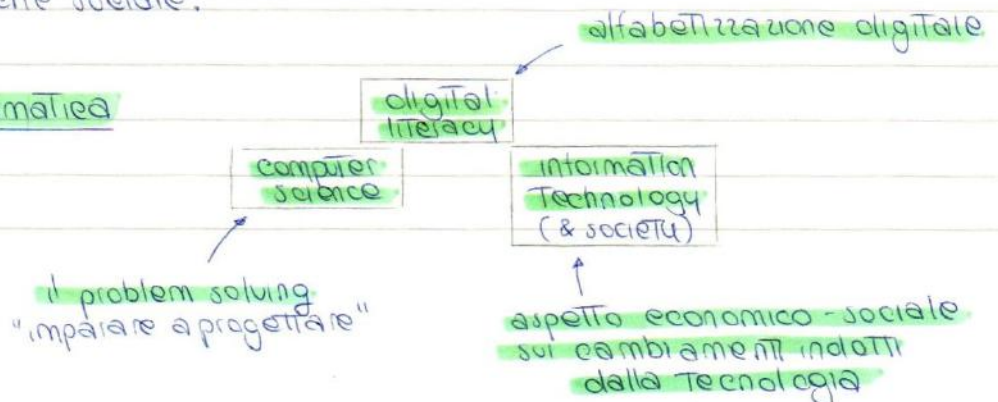 sociale.
alfabetizzazione digitale
matica
digital
literacy
computer
science
information
Technology
(& society)
il problem solving
"imparare a progettare"
aspetto economico-sociale
sui cambiamenti indotti
dalla Tecnologia